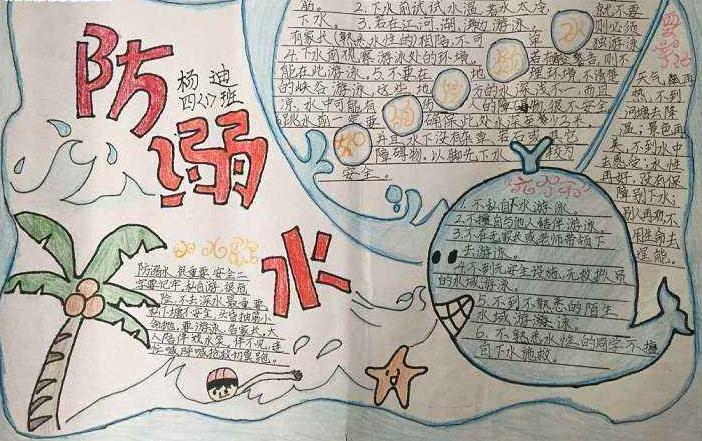 防溺水
杨迪
四(7)班
2.下水前试试水温,若水太冷,就不要
下水。3.若在江河、湖、海边游泳,则必须
有家长(熟悉水性的)相陪,不可
独游泳
4.下水前观察游泳处的环境。若有警告,则不
能在此游泳。5.不要在
地理环境不清楚
的峡谷游泳。这些地方的水深浅不一,而且
凉,水中可能有
的障碍物,很不安全。
跳水前一定要确保此处水深至少3米,
并且水下没有杂草、岩石或其它
障碍物。以脚先下水较为
安全。
如何防溺水
四字记
天气
热,不到
河塘去降
温;景色再
美,不到水中
去感受;水性
再好,没有保
障别下水;
用生命去
逞能。
六不准
1.不私自下水游泳。
2.不擅自与他人结伴游泳。
3.不在无家长或老师带领下
去游泳。
4.不到无安全设施、无救援人员
的水域游泳。
5.不到不熟悉的陌生
水域游泳。
6.不熟悉水性的同学不擅
自下水施救。
防溺水,很重要,安全二
字要记牢,私自游,很危
险,不去深水最重要,
要游泳,告家长,大
人陪伴